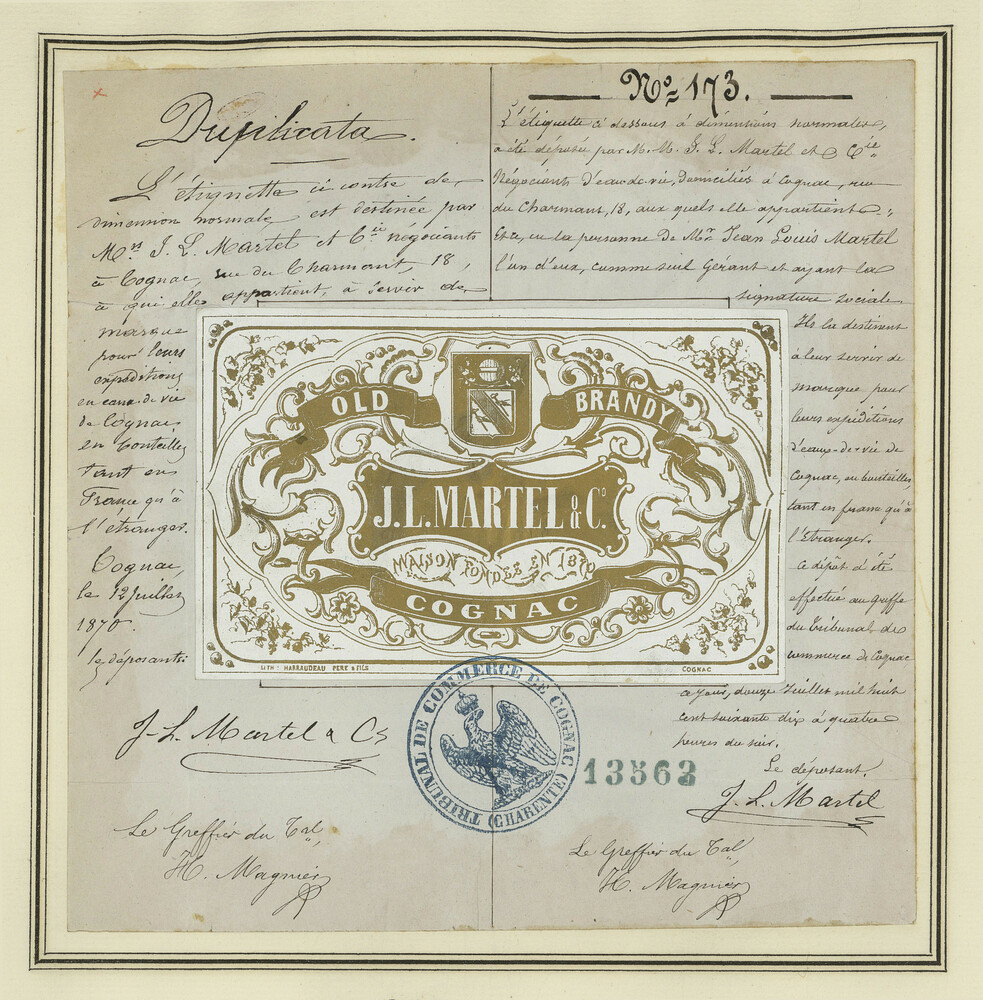 Duplicata.
L'étiquette ci contre de
dimension normale, est destinée par
Mrs J. L. Martel et Cie négociants
à Cognac, rue du Charmant, 18,
à qui elle appartient, à servir de
marque
pour leurs
expéditions
en eaux de vie
de Cognac
en bouteilles
tant en
France qu'à
l'étranger.
Cognac
le 12 juillet
1870.
les déposants
J. L. Martel & Co
Le Greffier du Tal,
H. Magnier
No 173.
L'étiquette ci dessous à dimensions normales,
a été déposée par M. M. J. L. Martel et Cie
Négociants d'eau-de-vie, Domiciliés à Cognac, rue
du Charmant, 18, aux quels elle appartient.
Et ce, en la personne De Mr Jean Louis Martel
l'un d'eux, comme seul Gérant et ayant la
signature sociale
Ils la destinent
à leur servir de
marque pour
leurs expéditions
d'eaux-de-vie de
Cognac, en bouteilles
tant en france qu'à
l'Etranger.
Ce dépôt a été
effectué au greffe
du Tribunal de
commerce de Cognac
ce jour, douze Juillet mil huit
cent soixante dix à quatre
heures du soir.
Le déposant,
J. L. Martel
Le Greffier du Tal
H. Magnier
OLD BRANDY
J.L. MARTEL & Co.
MAISON FONDÉE EN 1870
COGNAC
LITH: HARRAUDEAU PERE & FILS
COGNAC
TRIBUNAL DE COMMERCE DE COGNAC (CHARENTE)
13563